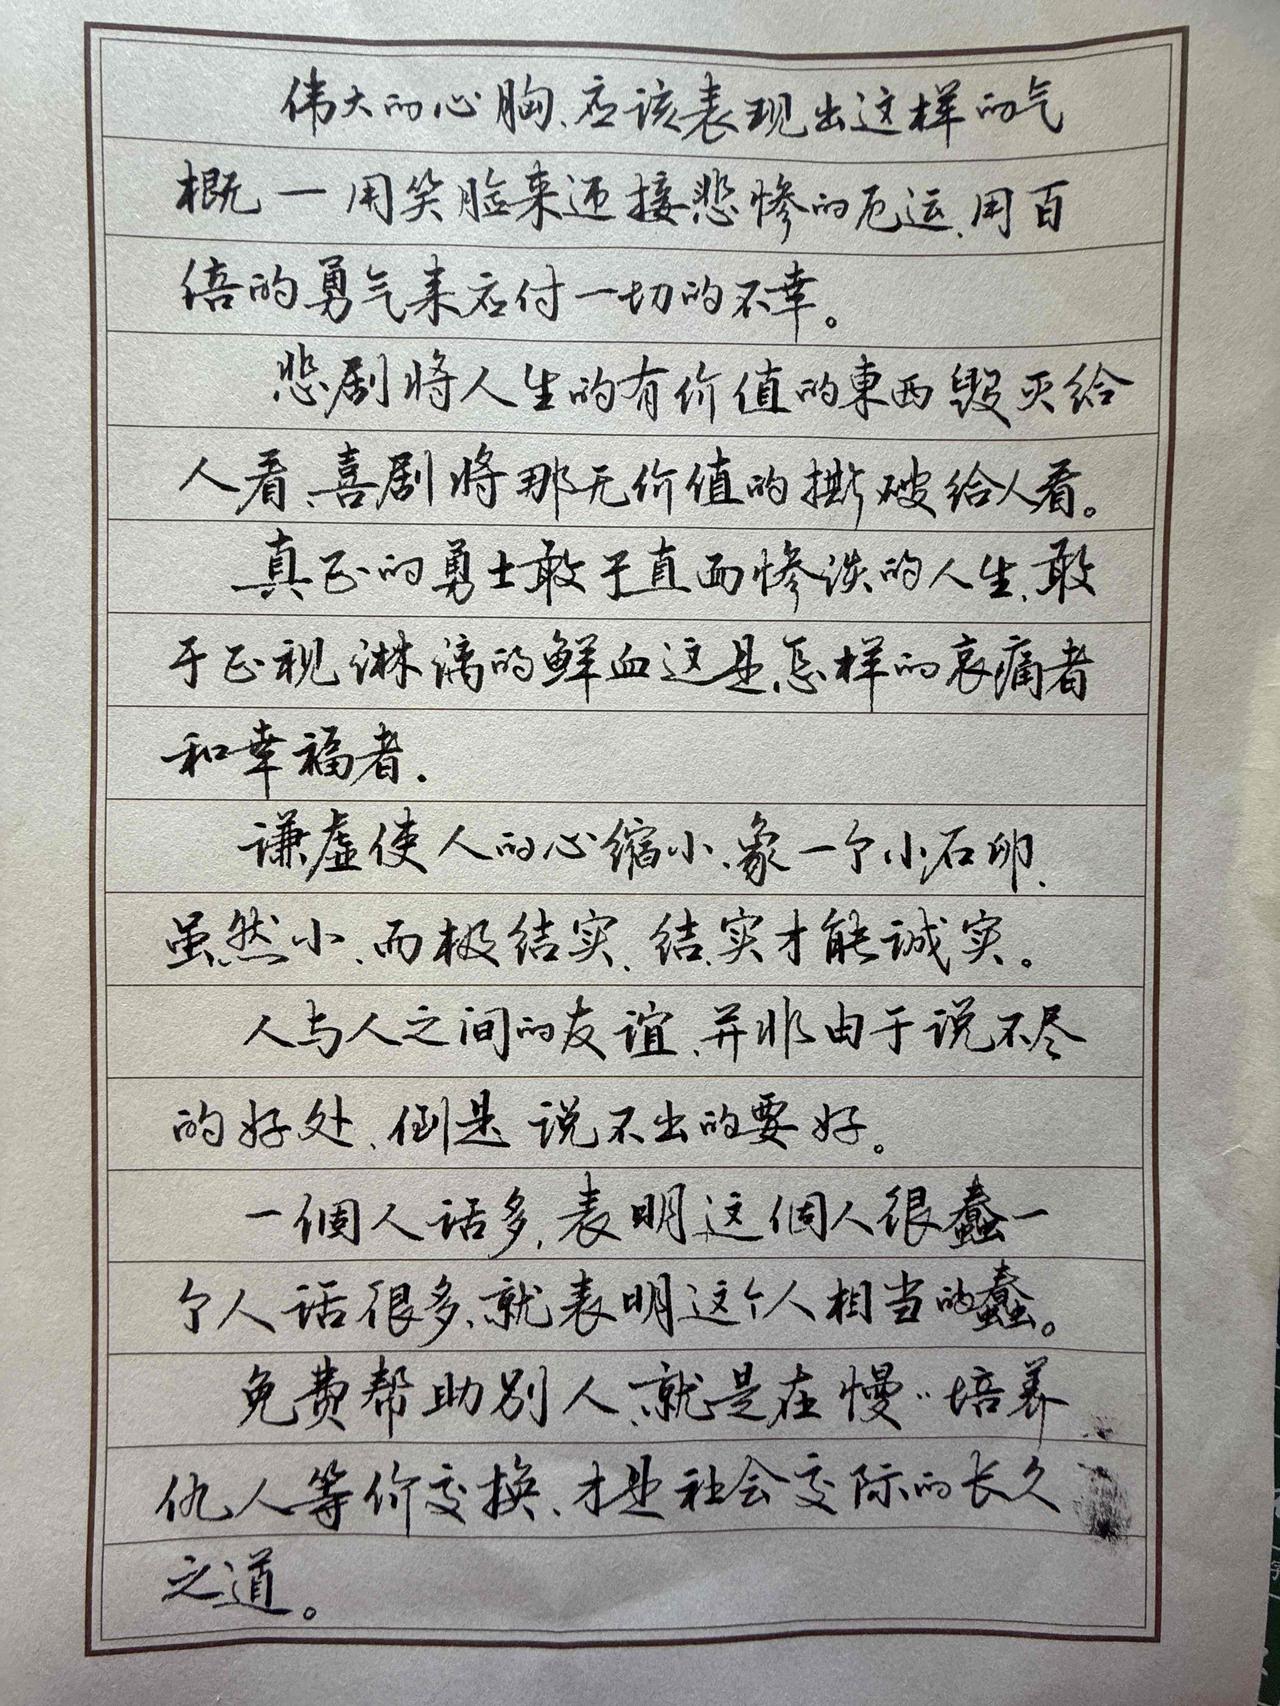 伟大的心胸、应该表现出这样的气
概一用笑脸来迎接悲惨的厄运、用百
倍的勇气来应付一切的不幸。
悲剧将人生的有价值的東西毁灭给
人看、喜剧将那无价值的撕破给人看。
真正的勇士敢于直面惨淡的人生、敢
于正视淋漓的鲜血这是怎样的哀痛者
和幸福者.
谦虚使人的心缩小、象一个小石卵、
虽然小、而极结实、结实才能诚实。
人与人之间的友谊、并非由于说不尽
的好处、倒是说不出的要好。
一個人话多,表明这個人很蠢一
个人话很多、就表明这个人相当的蠢。
免费帮助别人、就是在慢〃培养
仇人等价交换、才是社会交际的长久
之道。